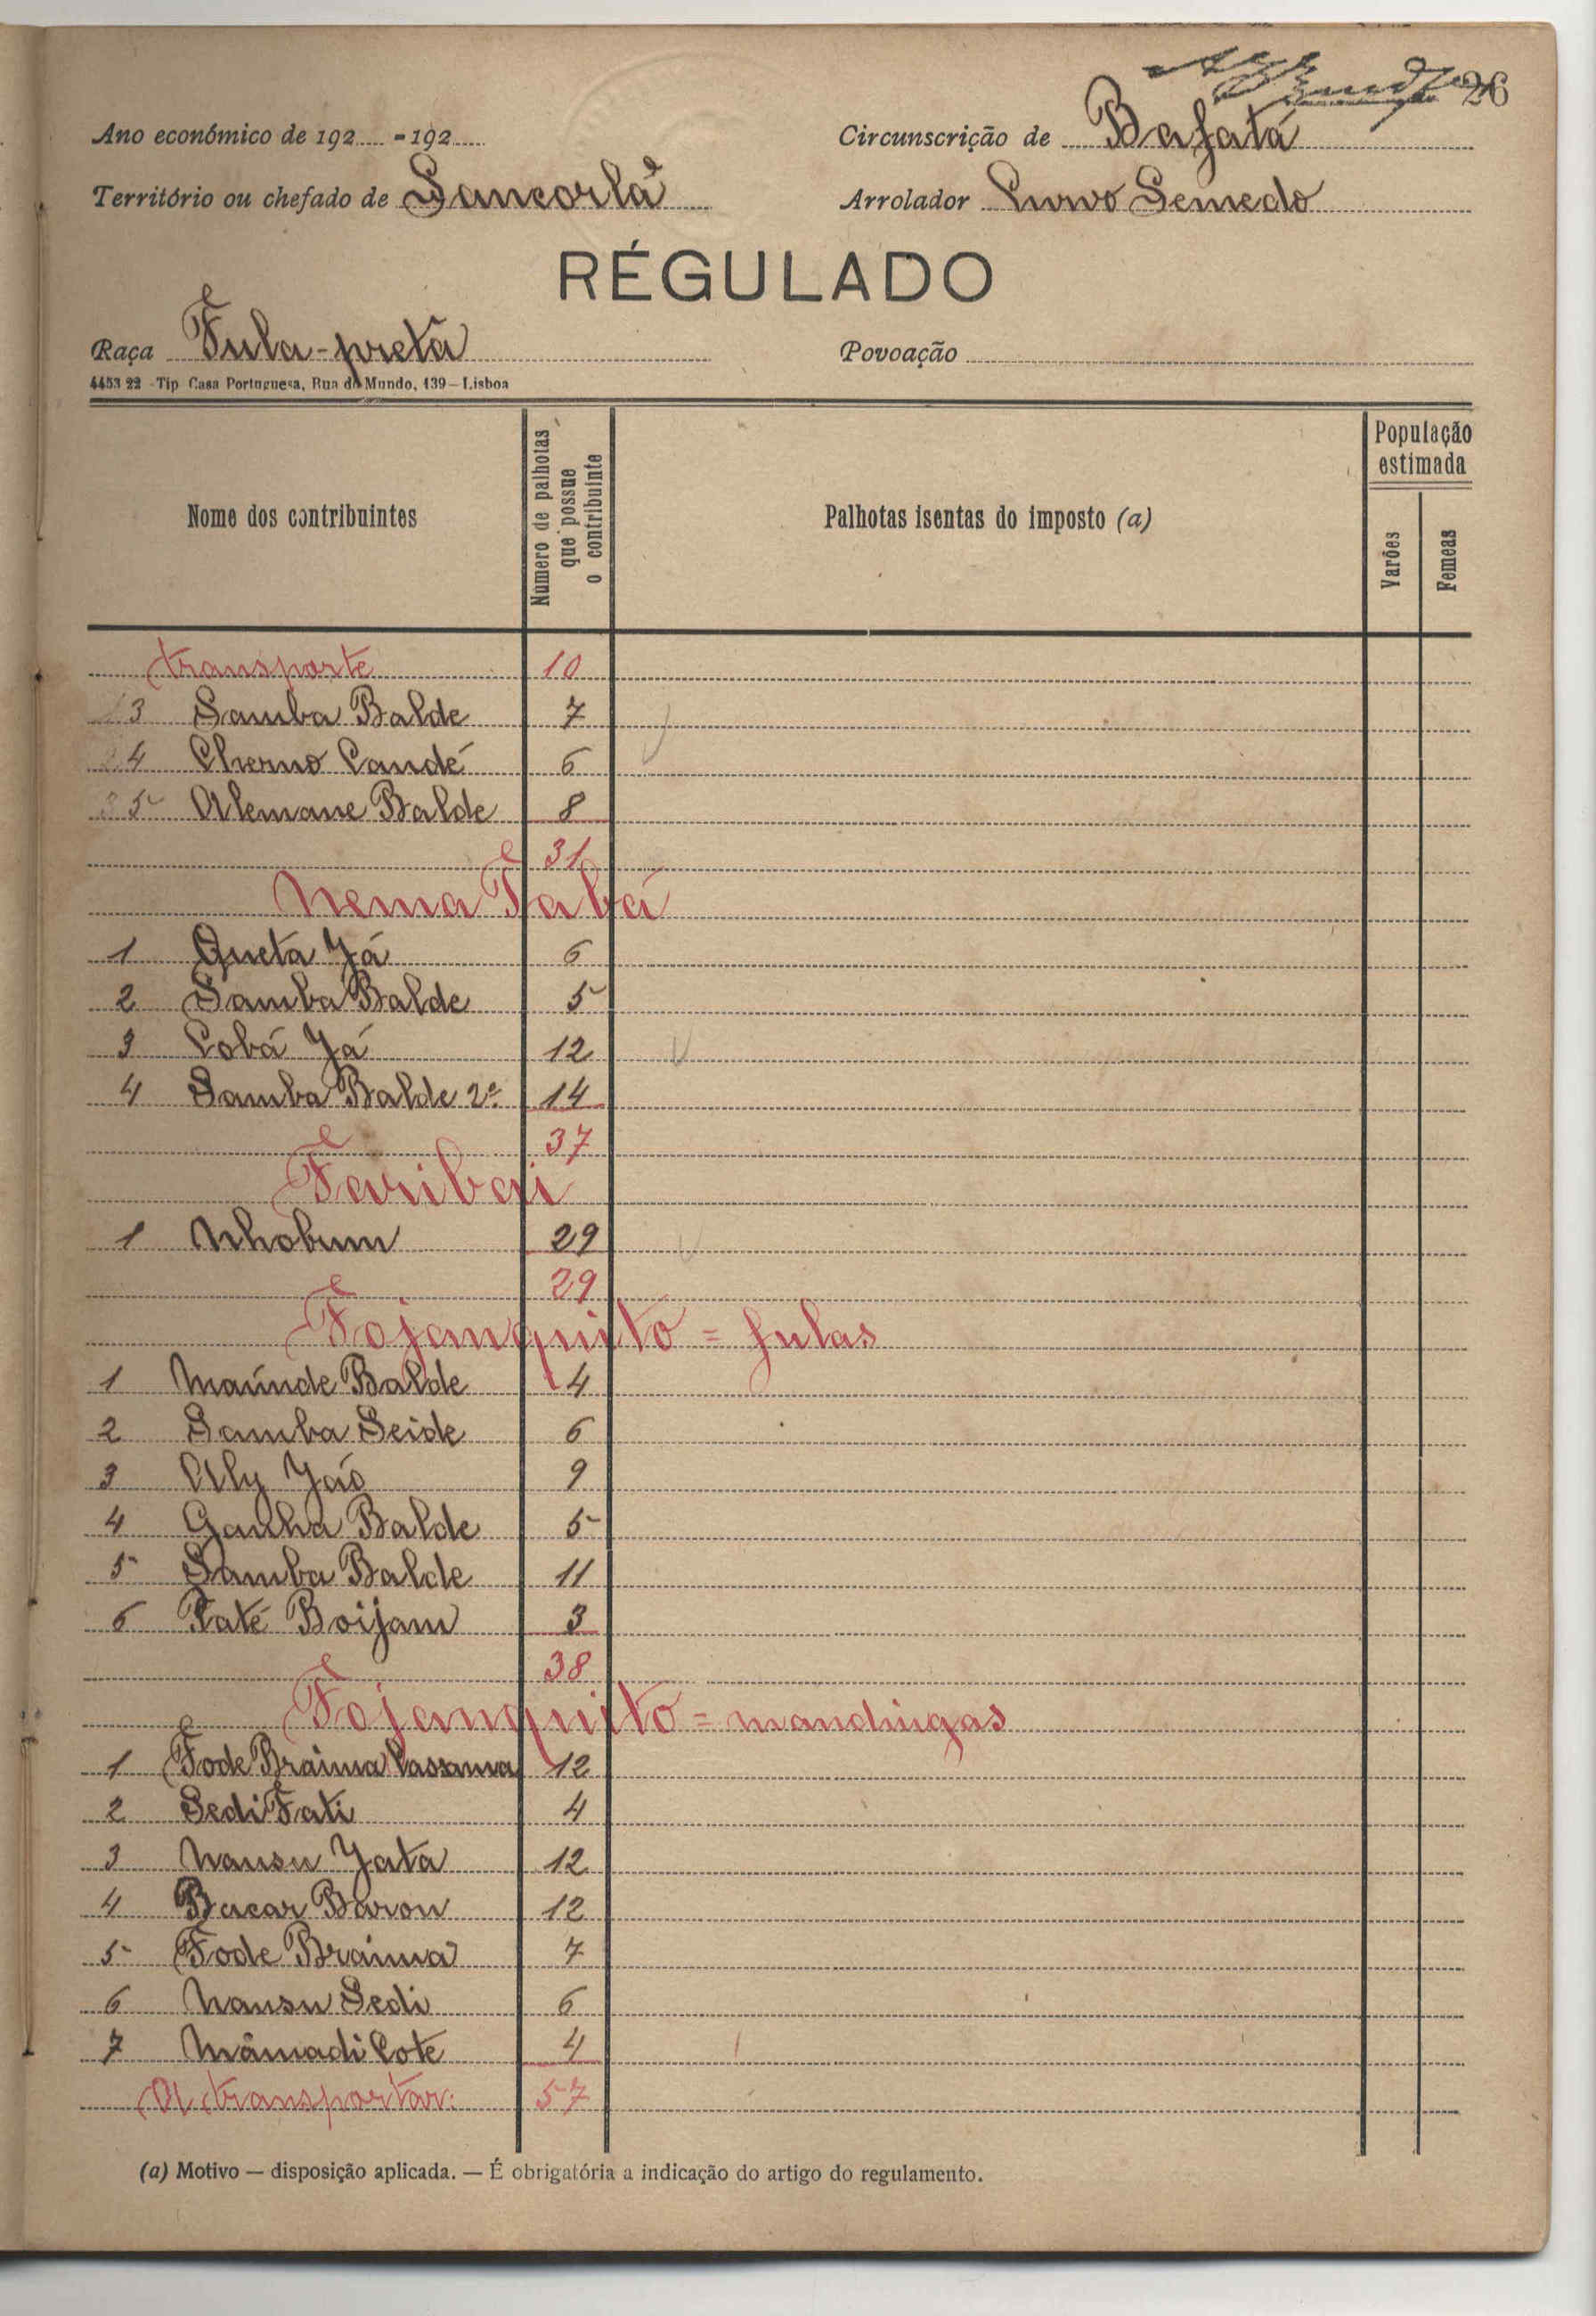 26
Ano económico de 192 - 192
Circunscrição de Bafatá
Território ou chefado de Sancorlá
Arrolador Semedo
RÉGULADO
Raça Fula-preta
Povoação
4453 22 - Tip Casa Portuguesa, Rua do Mundo, 139 - Lisboa
Nome dos contribuintes
Número de palhotas que possue o contribuinte
Palhotas isentas do imposto (a)
População estimada
Varões
Femeas
transporte 10
3 Samba Balde 7
4 Cherno Candé 6
5 Alemane Balde 8
31
Nema Tabá
1 Queta Já 6
2 Samba Balde 5
3 Cobá Já 12
4 Samba Balde 2º 14
37
Faribai
1 Nhobum 29
29
Fojanquito = fulas
1 Maúnde Balde 4
2 Samba Seide 6
3 Aly Jaó 9
4 Ganha Balde 5
5 Samba Balde 11
6 Paté Boijam 3
38
Fojanquito = mandingas
1 Fode Braima Cassama 12
2 Sedi Fati 4
3 Nansu Jata 12
4 Bacar Baron 12
5 Fode Braima 7
6 Nansu Sedi 6
7 Mâmadi Cote 4
A transportar: 57
(a) Motivo — disposição aplicada. — É obrigatória a indicação do artigo do regulamento.